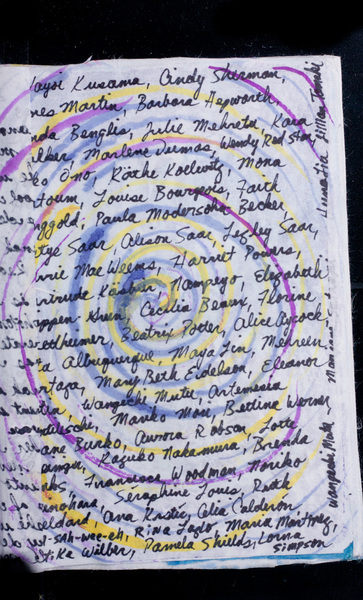 Yayoi Kusama, Cindy Sherman,
nes Martin, Barbara Hepworth,
nda Benglis, Julie Mehretu, Kara
lker, Marlene Dumas, Wendy Red Star
ko Ono, Käthe Kollwitz, Mona
toum, Louise Bourgeois, Faith
nggold, Paula Modersohn Becker,
tye Saar, Alison Saar, Lezley Saar,
rrie Mae Weems, Harriet Powers,
rtrude Käsbier, Nampeyo, Elizabeth
Cecilia Beaux, Florine
ettheimer, Beatrix Potter, Alice Aycock
ta Albuquerque, Maya Lin, Mehrein
tafa, Mary Beth Edelson, Eleanor
Wangechi Mutu, Artemesia
ntileschi, Mariko Mori, Bettina Werner
ane Burko, Aurora Robson, Lotte
Kazuko Nakamura, Brenda
Francesca Woodman, Noriko
Seraphine Louis, Ruth
Ana Kostic, Celia Calderón
ut-sah-wee-eh, Pina Lazlo, Maria Martinez,
Ka Wilber, Pamela Shields, Lorna
Simpson
Wangechi Mutu